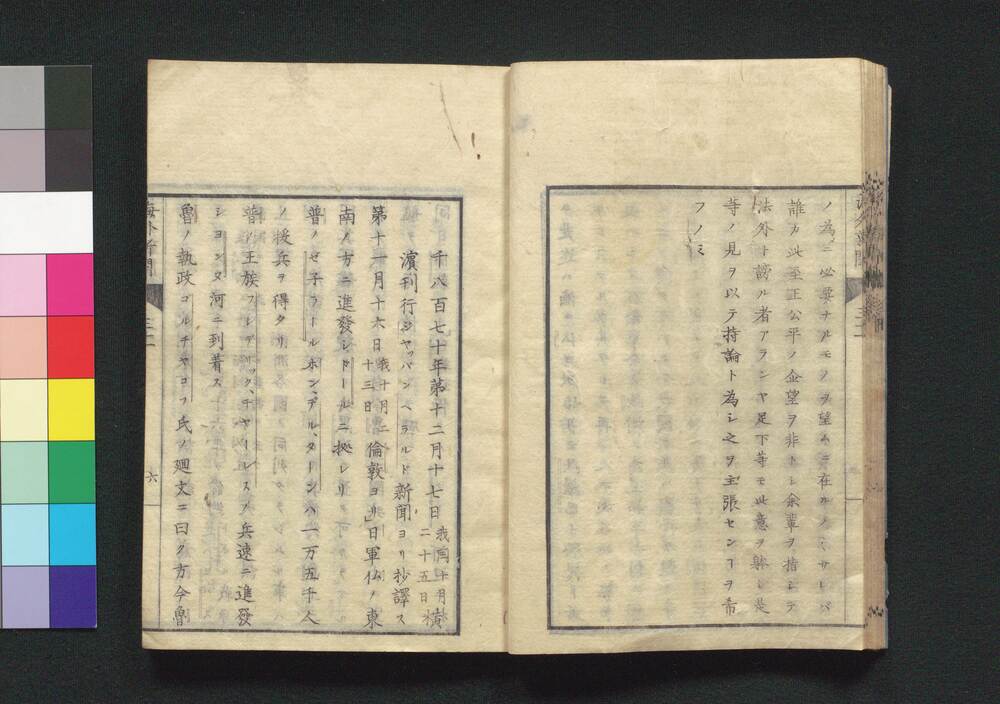 ノ為ニ必要ナルモノヲ望ムニ在ルノミサレバ
誰カ此至正公平ノ企望ヲ非トシ余輩ヲ指シテ
法外ト謗ル者アランヤ足下等モ此意ヲ躰シ是
等ノ見ヲ以テ持論ト為シ之ヲ主張センヿヲ希
フノミ
千八百七十年第十二月十七日我閏十月二十五日横
濱刊行ジヤッパンヘラルド新聞ヨリ抄譯ス
第十一月十六日我十月二十三日倫敦ヨリ日軍仏ノ東
南ノ方ニ進發シドールニ拠レリ
普ノゼ子ラールホン、デル、ターンハ一万五千人
ノ援兵ヲ得タリ
普ノ王族フレデリック、チヤールスノ兵速ニ進發
シヨンヌ河ニ到着ス
魯ノ執政ゴルチヤコフ氏ノ廻文ニ曰ク方今魯
海外新聞
六